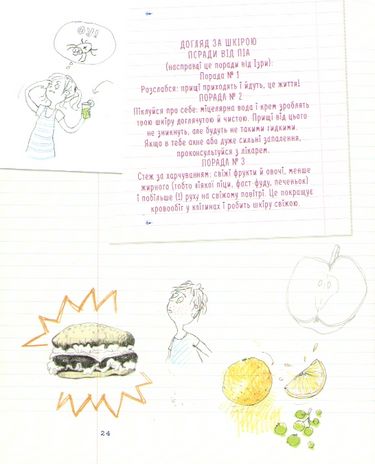 ФУ!
ДОГЛЯД ЗА ШКІРОЮ
ПОРАДИ ВІД ПІА
(насправді це поради від Ізри):
Порада № 1
Розслабся: прищі приходять і йдуть, це життя!
ПОРАДА № 2
Піклуйся про себе: міцелярна вода і крем зроблять
твою шкіру доглянутою й чистою. Прищі від цього
не зникнуть, але будуть не такими гидкими.
Якщо в тебе акне або дуже сильні запалення,
проконсультуйся з лікарем.
ПОРАДА № 3
Стеж за харчуванням: свіжі фрукти й овочі, менше
жирного (тобто ніякої піци, фаст-фуду, печеньок)
і побільше (!) руху на свіжому повітрі. Це покращує
кровообіг у клітинах і робить шкіру свіжою.
24